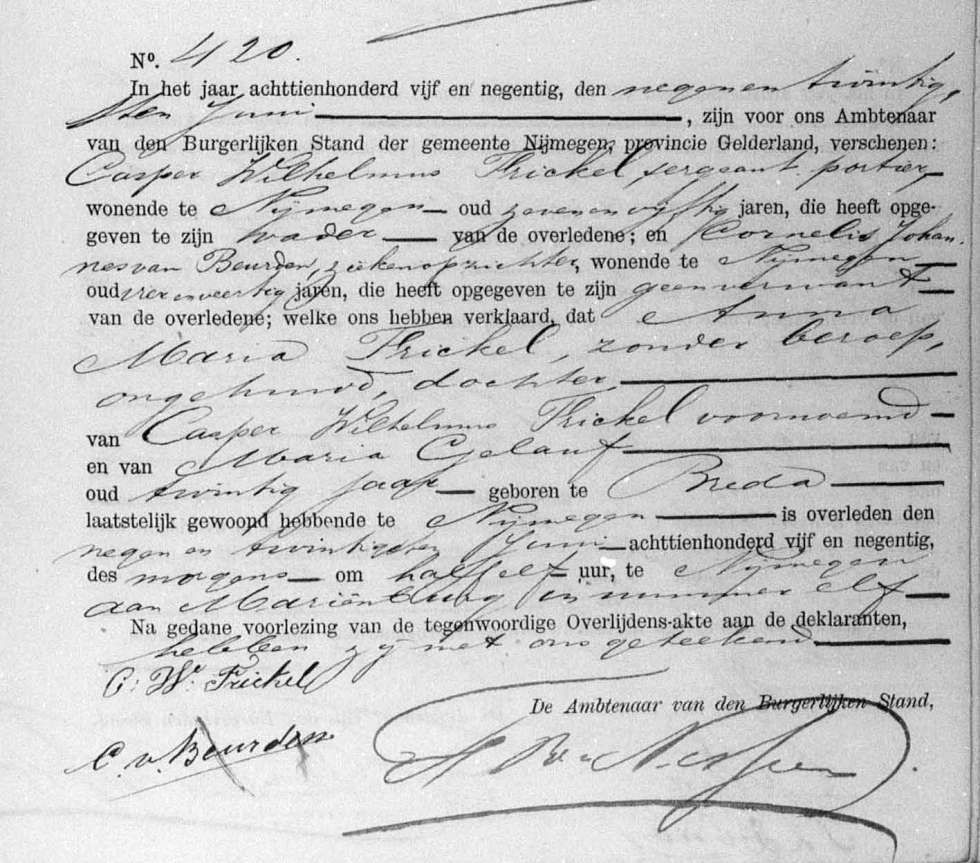 No. 420.
In het jaar achttienhonderd vijf en negentig, den negen en twintig,
sten Juni, zijn voor ons Ambtenaar
van den Burgerlijken Stand der gemeente Nijmegen, provincie Gelderland, verschenen:
Casper Wilhelmus Frickel, sergeant portier,
wonende te Nijmegen oud zeven en vijftig jaren, die heeft opge-
geven te zijn vader van de overledene; en Cornelis Johan-
nes van Beurden, ziekenopzichter, wonende te Nijmegen
oud vier en veertig jaren, die heeft opgegeven te zijn geen verwant
van de overledene; welke ons hebben verklaard, dat Anna
Maria Frickel, zonder beroep,
ongehuwd, dochter,
van Casper Wilhelmus Frickel voornoemd
en van Maria Gelauf
oud twintig jaar geboren te Breda
laatstelijk gewoond hebbende te Nijmegen is overleden den
negen en twintigsten Juni achttienhonderd vijf en negentig,
des morgens om half elf uur, te Nijmegen
aan Mariënburg in nummer elf
Na gedane voorlezing van de tegenwoordige Overlijdens-akte aan de deklaranten,
hebben zij met ons geteekend
C: W: Frickel
De Ambtenaar van den Burgerlijken Stand,
C. v. Beurden